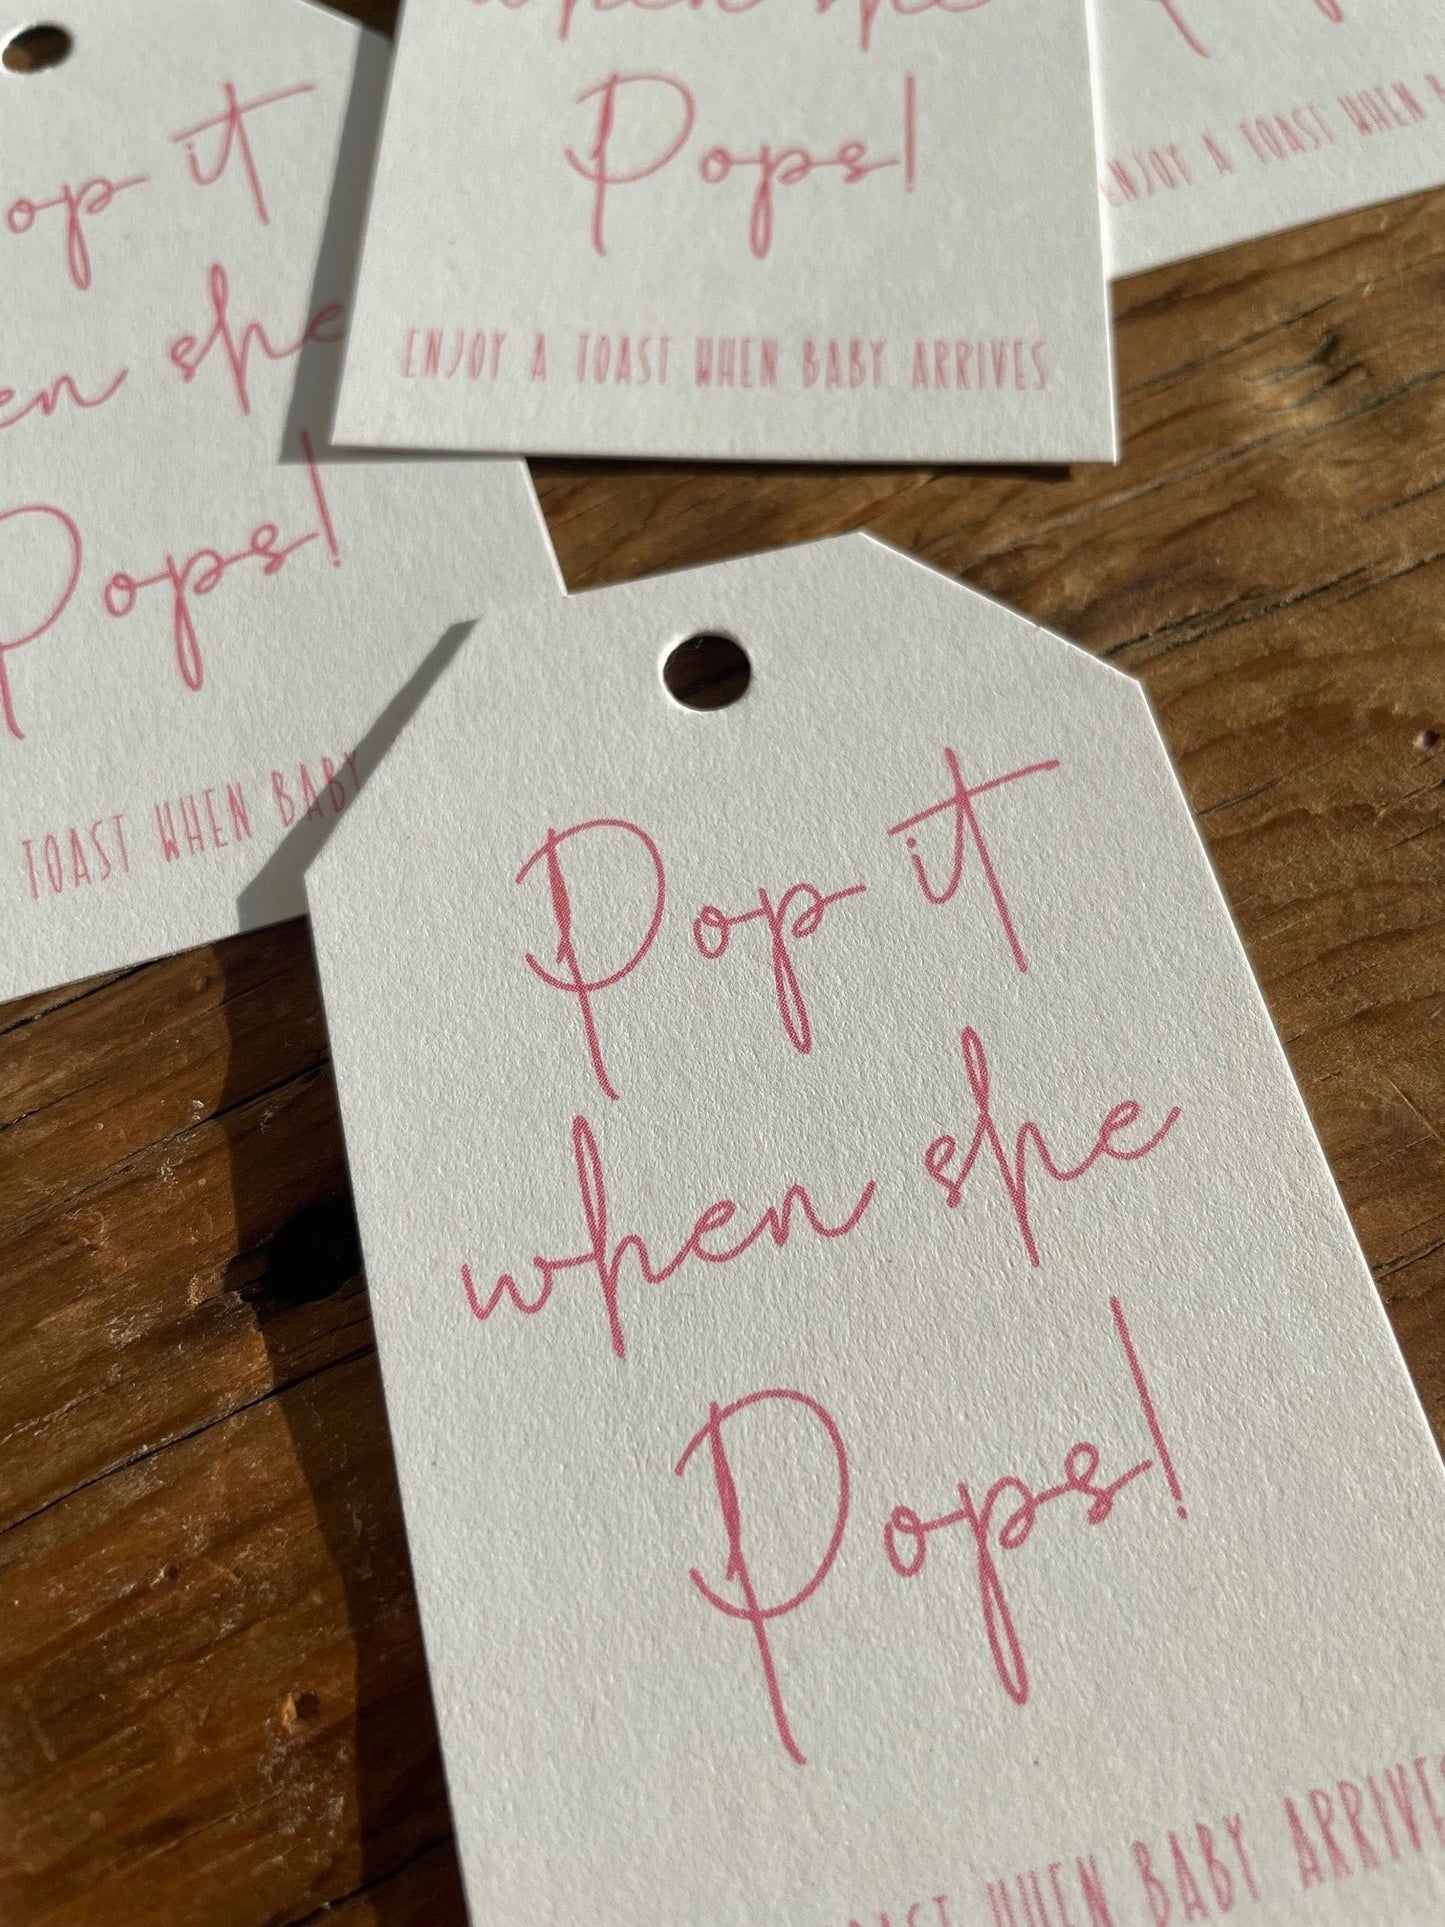 op it
en she
Pops!
TOAST WHEN BABY
when she
Pops!
ENJOY A TOAST WHEN BABY ARRIVES
ENJOY A TOAST WHEN B
Pop it
when she
Pops!
TOAST WHEN BABY ARRIVES